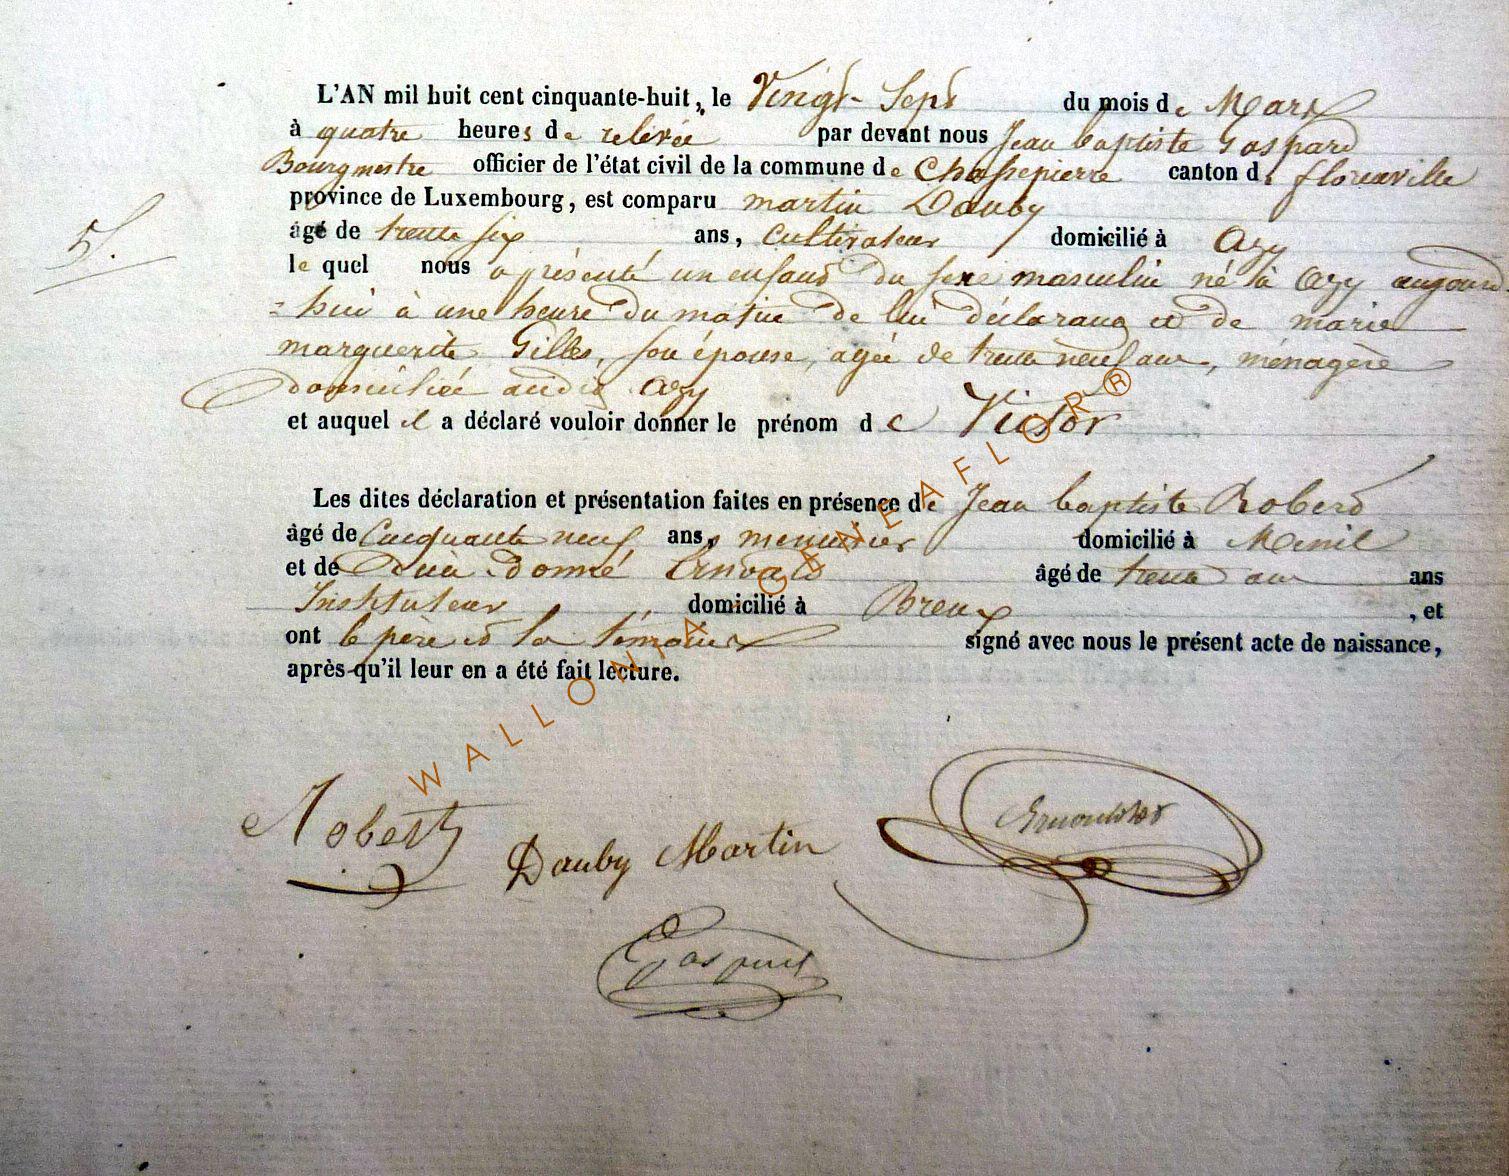 L'AN mil huit cent cinquante-huit, le Vingt-Sept du mois de Mars
à quatre heures de relevée par devant nous Jean baptiste Gaspard
Bourgmestre officier de l'état civil de la commune de Chassepierre canton de florenville
province de Luxembourg, est comparu martin Dauby
5.
âgé de trente six ans, Cultivateur domicilié à Azy
le quel nous a présenté un enfant du sexe masculin né à Azy aujourd
=hui à une heure du matin de lui déclarant et de marie
marguerite Gilles, son épouse, agée de trente neuf ans, ménagère
domiciliée audit Azy
et auquel il a déclaré vouloir donner le prénom de Victor
Les dites déclaration et présentation faites en présence de Jean baptiste Robert
âgé de Cinquante neuf ans, menuisier domicilié à Menil
et de Dieu-donné âgé de trente ans ans
Instituteur domicilié à Breux, et
ont le père et les témoins signé avec nous le présent acte de naissance,
après-qu'il leur en a été fait lecture.
WALLONIA GENEAFLOR®
Robert
Dauby Martin
Gaspard